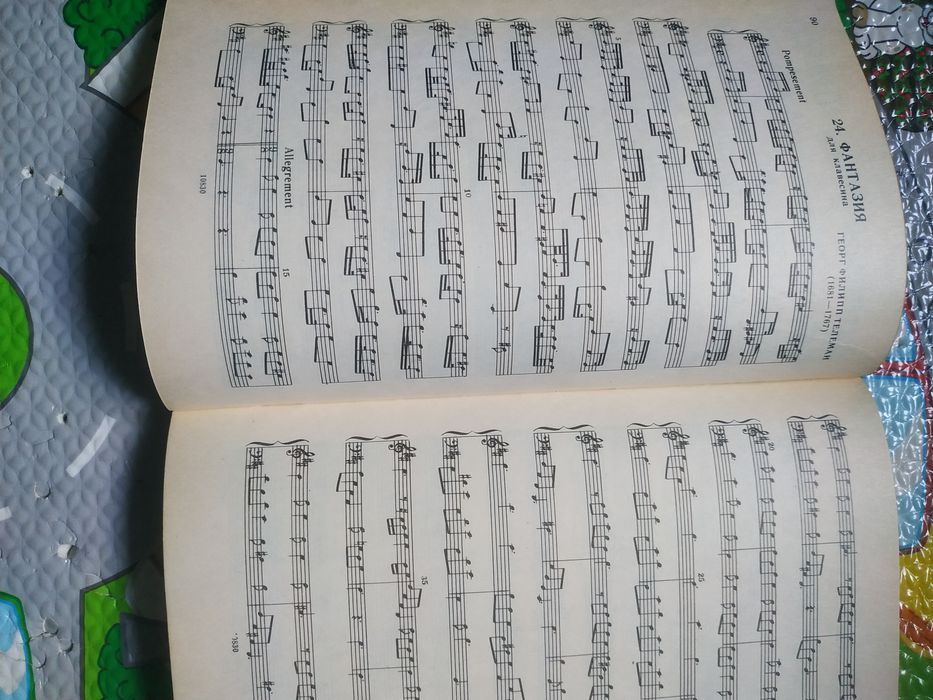 90
24. ФАНТАЗИЯ
для клавесина
ГЕОРГ ФИЛИПП ТЕЛЕМАН
(1681—1767)
Pompesement
5
10
Allegrement
15
10830
20
25
35